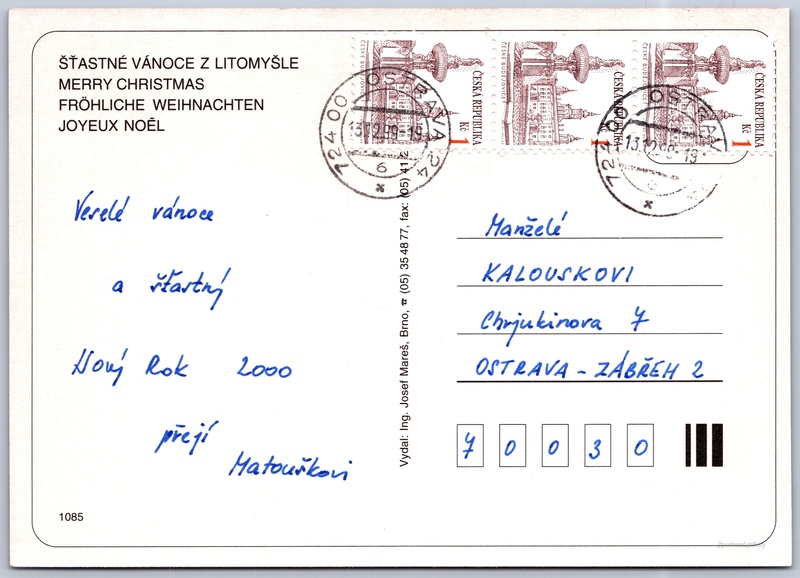 ŠŤASTNÉ VÁNOCE Z LITOMYŠLE
MERRY CHRISTMAS
FRÖHLICHE WEIHNACHTEN
JOYEUX NOËL
Veselé vánoce
a šťastný
Nový Rok 2000
přejí
Matouškovi
1085
Vydal: Ing. Josef Mareš, Brno, ☎ (05) 35 48 77, fax: (05) 41 2
ČESKÁ REPUBLIKA
Kč 1
ČESKÁ REPUBLIKA
1
ČESKÁ REPUBLIKA
Kč 1
724 00 OSTRAVA 24
13.12.99-19
6
724 0 OSTRAV
13.12.99-19
6
Manželé
KALOUSKOVI
Chrjukinova 7
OSTRAVA - ZÁBŘEH 2
7 0 0 3 0